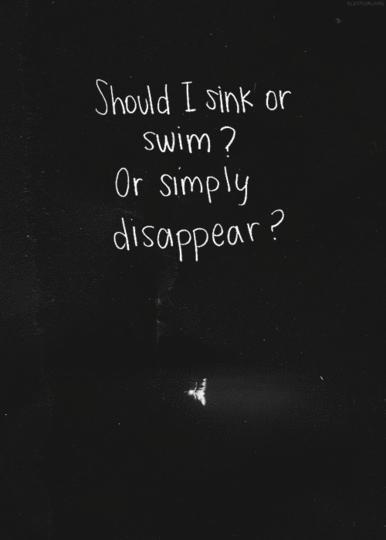 Should I sink or
swim?
Or simply
disappear?